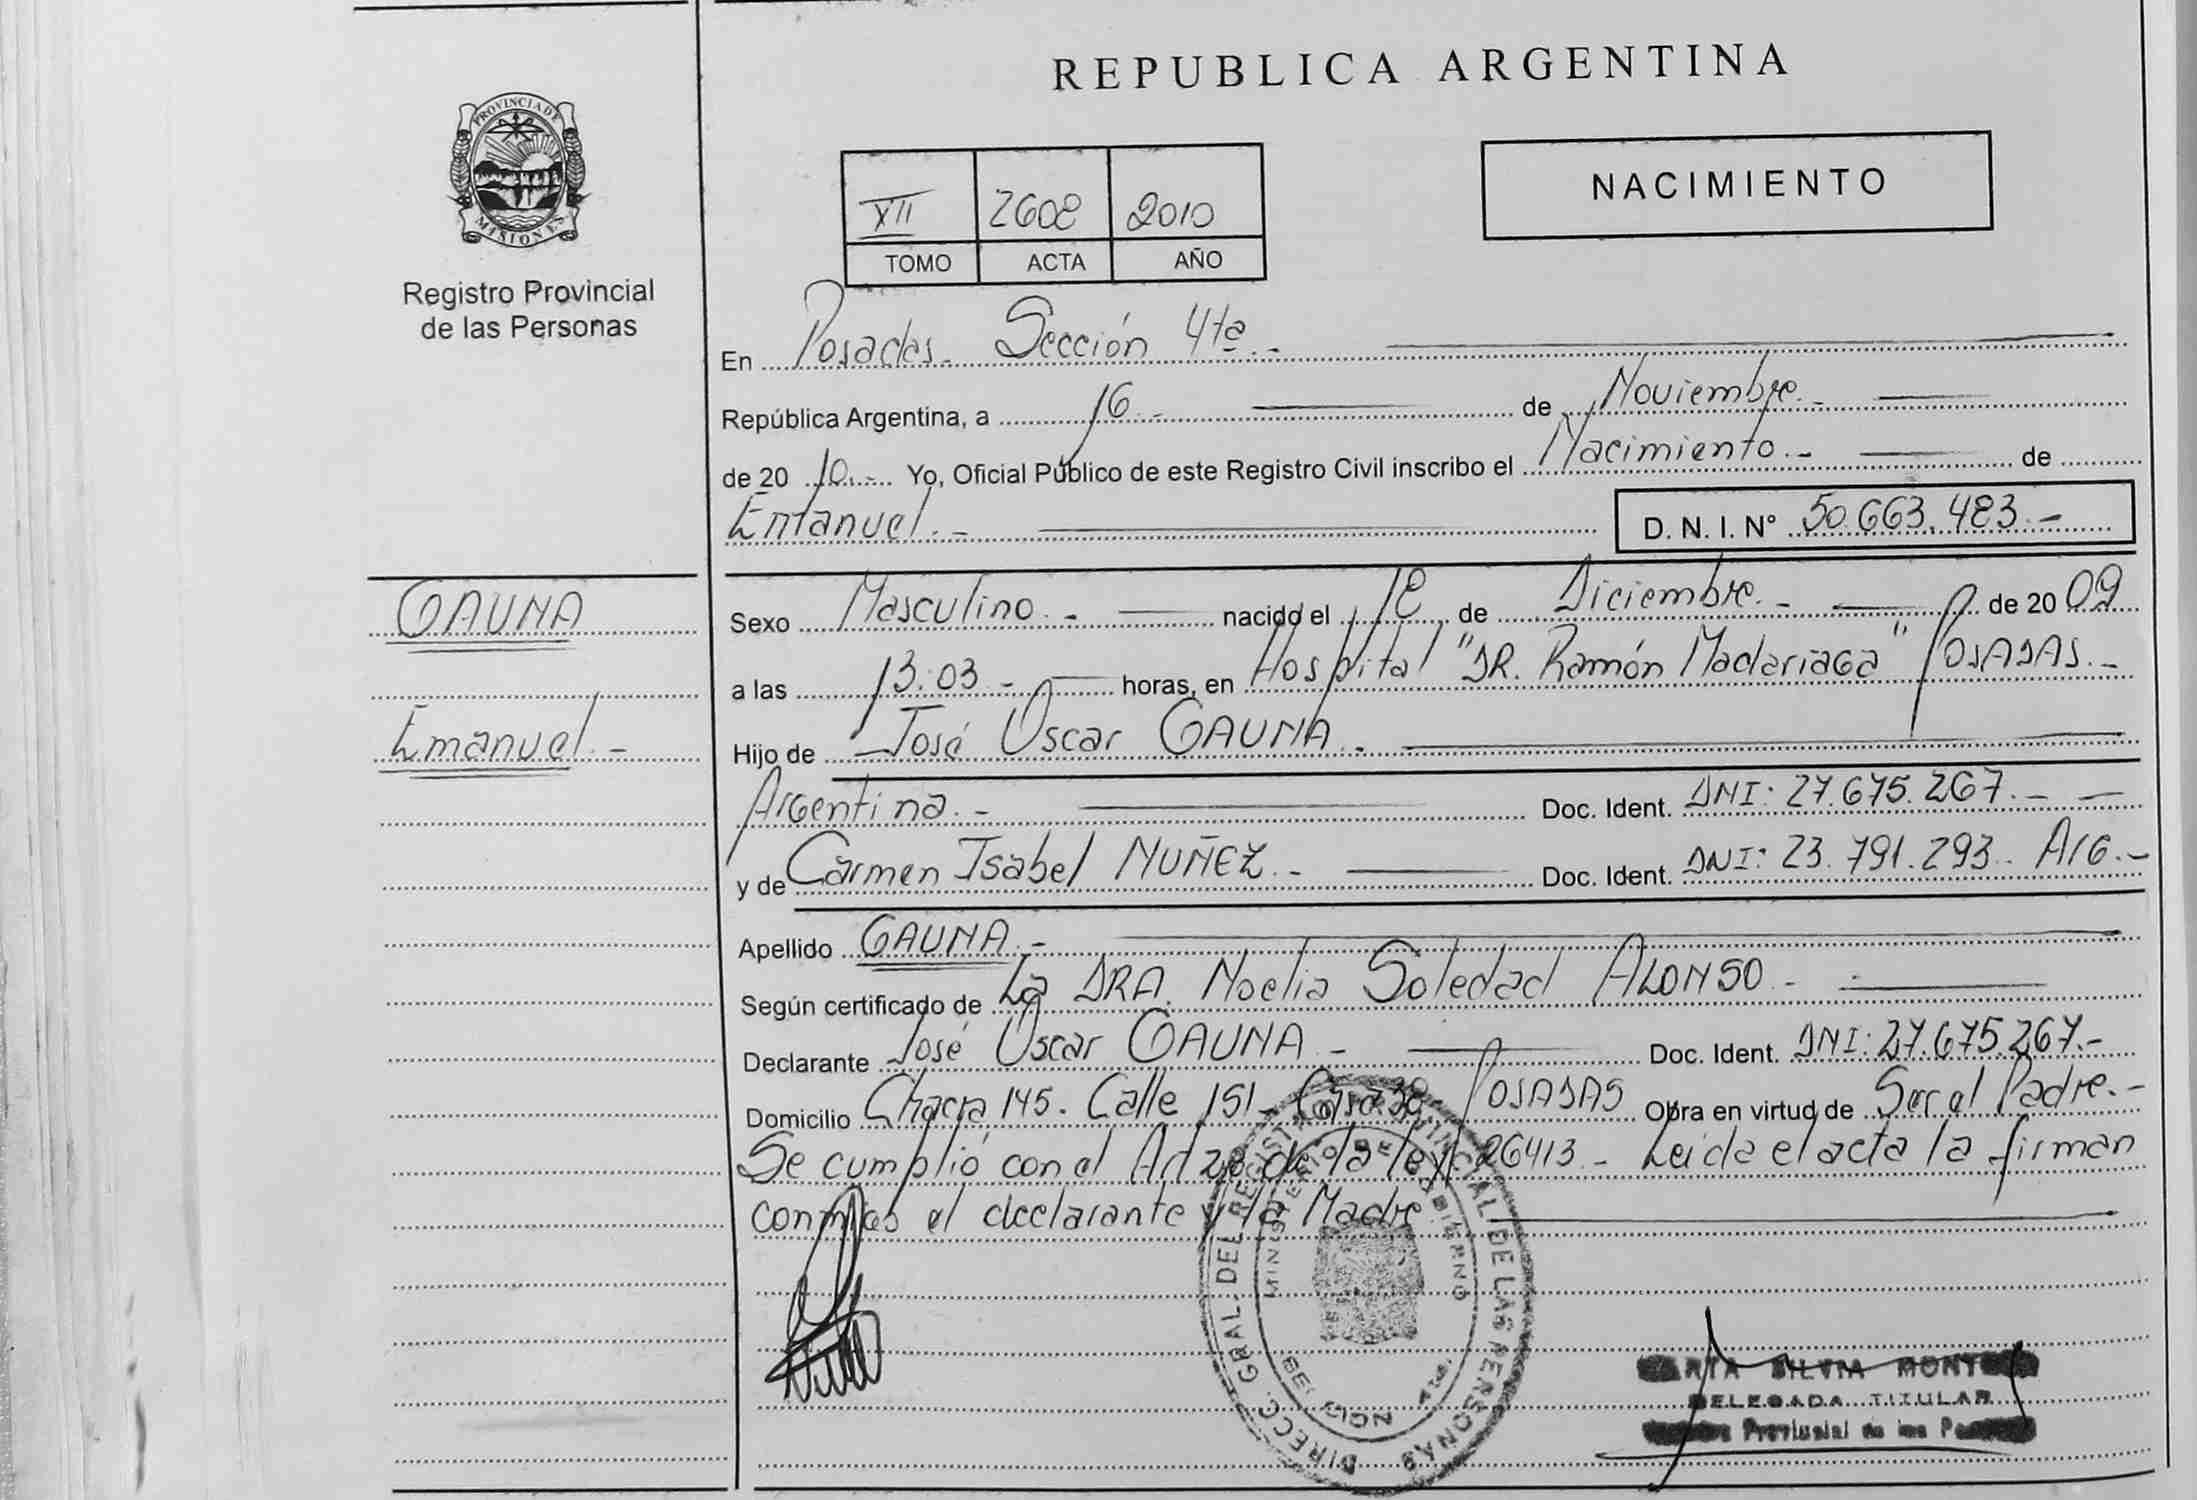 REPUBLICA ARGENTINA
PROVINCIA DE
MISIONES
Registro Provincial
de las Personas
NACIMIENTO
XII 2608 2010
TOMO ACTA AÑO
En Posadas. Sección 4ta.-
República Argentina, a 16.- de Noviembre.-
de 20 10.- Yo, Oficial Público de este Registro Civil inscribo el Nacimiento.- de
Emanuel.- D. N. I. N° 50.663.483.-
GAUNA
Emanuel.-
Sexo Masculino.- nacido el 18 de Diciembre.- de 20 09
a las 13:03.- horas, en Hospital "DR. Ramón Madariaga" POSADAS.-
Hijo de José Oscar GAUNA.
Argentina.- Doc. Ident. DNI: 27.675.267.-
y de Carmen Isabel NUÑEZ.- Doc. Ident. DNI: 23.791.293.- Arg.-
Apellido GAUNA.-
Según certificado de La DRA. Noelia Soledad ALONSO.-
Declarante José Oscar GAUNA.- Doc. Ident. DNI: 27.675.267.-
Domicilio Chacra 145. Calle 151- Casa 38- POSADAS Obra en virtud de Ser el Padre.-
Se cumplió con el Art 28 de la ley 26413.- Leida el acta la firman
conmigo el declarante y la Madre
DIRECC. GRAL. DEL REGISTRO PROVINCIAL DE LAS PERSONAS
MINISTERIO DE GOBIERNO
SILVIA
DELEGADA TITULAR
Provincial de las